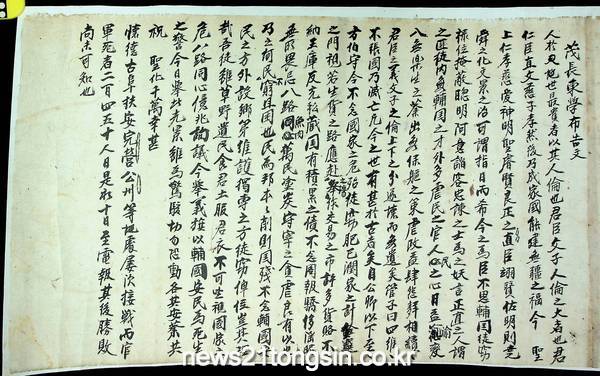 茂長東學布告文
人於天地世最貴者以其人倫也君臣父子人倫之大者也君
仁臣直父慈子孝然後乃成家國能逮無疆之福今 聖
上仁孝慈愛神明聖睿賢良正之直臣翊贊佐明則堯
舜之化文景之治可謂指日而希今之爲臣不思輔國徒窃
祿位掩蔽聰明阿意諂容忠諫之士爲之妖言正直之人謂
之匪徒內無輔國之才外多虐民之官人民之心日益渝變
入無樂生之業出無保軀之策虐政益肆怨聲相續
君臣之義父子之倫上下之分遂壞而無遺矣管子曰四維
不張國乃滅亡方今之世有甚於古者矣自公卿以下至
方伯守令不念國家之危殆徒窃肥己潤家之計
之門視若生貨之路應試之場擧作交易之市許多貨賂不
納王庫反充私藏國有積累之債不念國報驕侈淫昵
無所畏忌八路魚肉萬民塗炭守宰之貪虐良有以也
乃之何民窮且困也民爲邦本本削則國殘不念輔國安
民之方外設鄕第維護獨專之方徒窃俸位豈其理
哉吾徒雖草野遺民食君土服君衣不可坐視國家之
危八路同心億兆詢議今擧義旗以輔國安民爲死生
之誓今日擧此光景雖爲驚駭切勿恐動各安其業共
祝 聖化千萬幸甚
檍德古阜扶安完營公州等地處屢次接戰而官
軍死者二百四五十人日是於十日至電報其後勝敗
尚未可知也
news21tongsin.co.kr